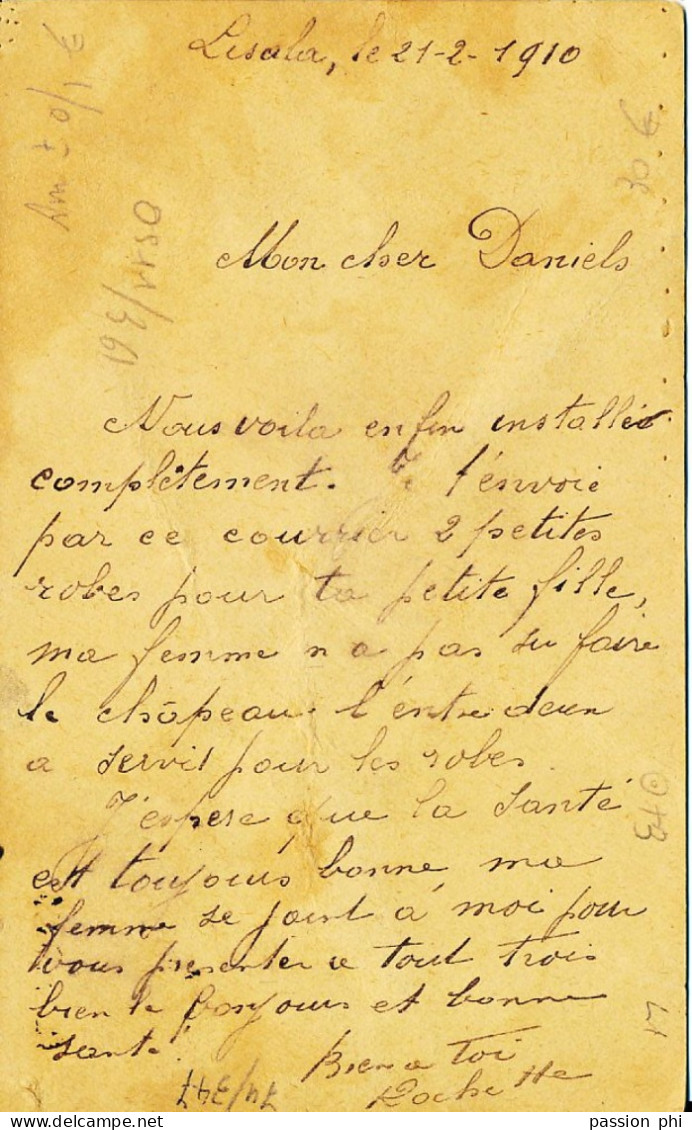 Lisala, le 21-2-1910
Mon cher Daniels
Nous voila enfin installés
complêtement. Je t'envoie
par ce courrier 2 petites
robes pour ta petite fille,
ma femme n a pas su faire
le châpeau. l'entre deux
a servit pour les robes.
J'espere que la santé
est toujours bonne ma
femme se joint à moi pour
vous presenter a tout trois
bien le bonjour et bonne
santé!
Bien a Toi
Rochette
74/347
passion phi